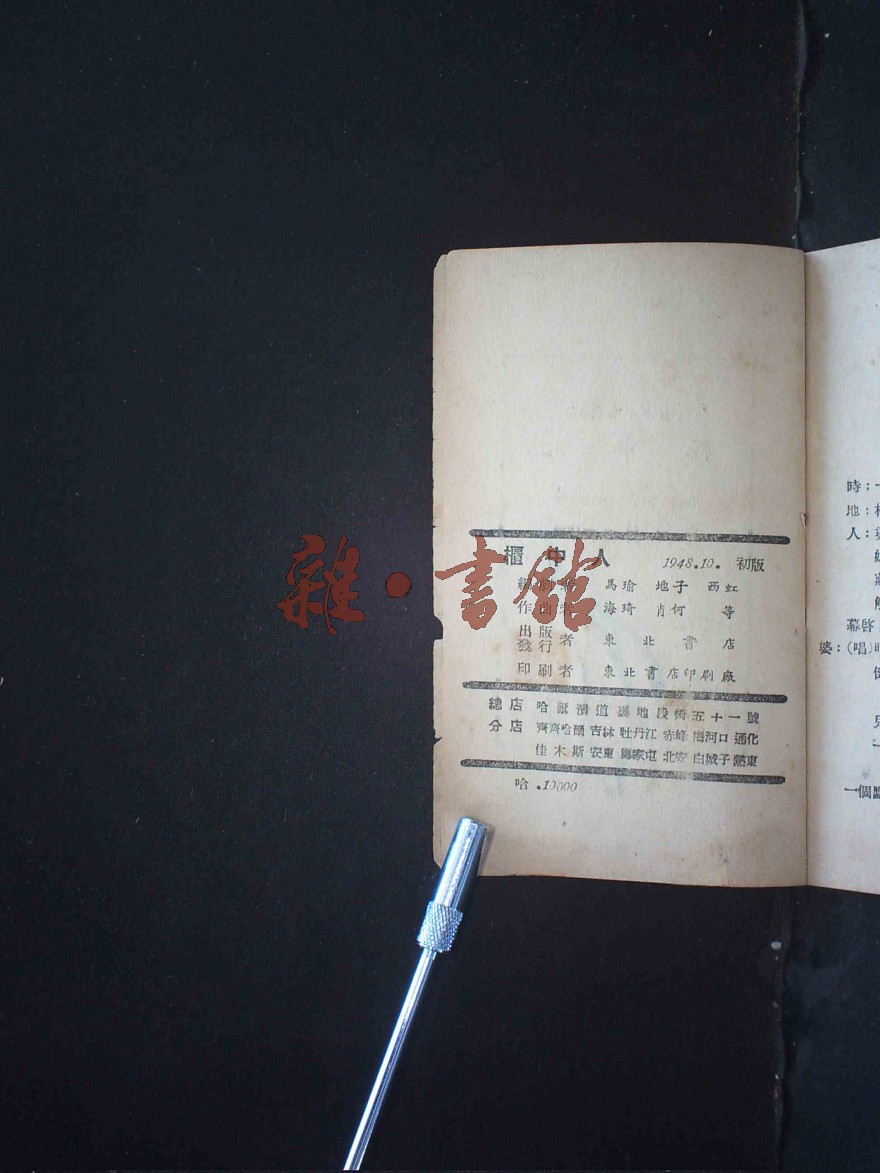 櫃中人 1948.10. 初版
編劇者 馬瑜 地子 西虹
作曲者 海琦 肖何 等
出版
發行 者 東北書店
印刷者 東北書店印刷廠
總店 哈爾濱道裏地段街五十一號
分店 齊齊哈爾 吉林 牡丹江 赤峰 海河口 通化
佳木斯 安東 鄭家屯 北安 白城子 熱東
哈.10000
雜·書館
時：一
地：
人：
幕啓
婆：(唱)
一個